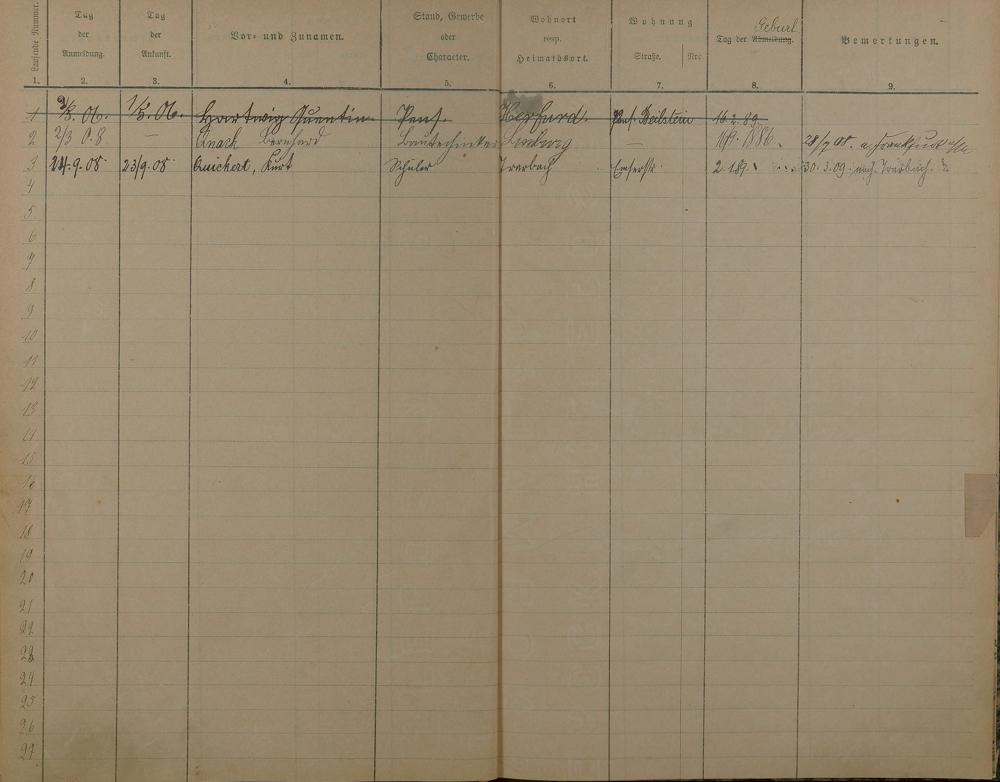 Laufende Nummer. Tag der Anmeldung. Tag der Ankunft. Vor- und Zunamen. Stand, Gewerbe oder Character. Wohnort resp. Heimathsort. Wohnung Straße. Nrc. Tag der Abmeldung. Geburt Bemerkungen.
1. 2. 3. 4. 5. 6. 7. 8. 9.
1 2/5. 06. 1/5. 06. Hartwig Quentin Pens. Herford. Pens. Beilstein 16.2.89
2 2/3 08 — Quack Bernhard Bautechniker Limburg — 1886.
3 24.9.08 23/9.08 Quickert, Kurt Schüler Trarbach Emserstr. 30.3.09. nach Trarbach.
4
5
6
7
8
9
10
11
12
13
14
15
16
17
18
19
20
21
22
23
24
25
26
27